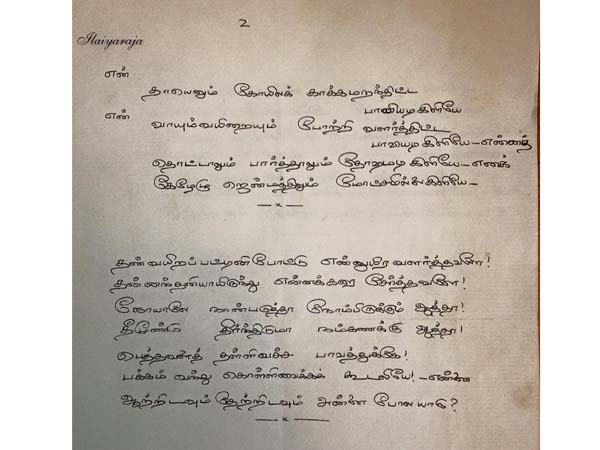 2
Ilaiyaraja
என்
தாயெனும் கோயிலைக் காக்கமறந்திட்ட
பாவியடி கிளியே
என்
வாயும்வயிறையும் போற்றி வளர்த்திட்ட
பாவியடி கிளியே - என்னைத்
தொட்டாலும் பார்த்தாலும் தோஷமடி கிளியே - எனக்
கேழேழு ஜென்மத்திலும் மோட்சமில்ல கிளியே -
தன்வயிறப் பட்டினிபோட்டு என்னுயிர வளர்த்தவளே!
தன்னந்தனியாயிருந்து என்னக்கரை சேர்த்தவளே!
நோயாலே நான்படுத்தா நோம்பிருக்கும் ஆத்தா!
தீர்ந்திடுமோ நம்கணக்கு ஆத்தா!
பெத்தவளத் தள்ளிவச்ச பாவத்துக்கே!
பக்கம் வந்து கொள்ளிவைக்கக் கூடலியே! - என்னை
ஆற்றிடவும் தேற்றிடவும் அன்னை போல யாரு?